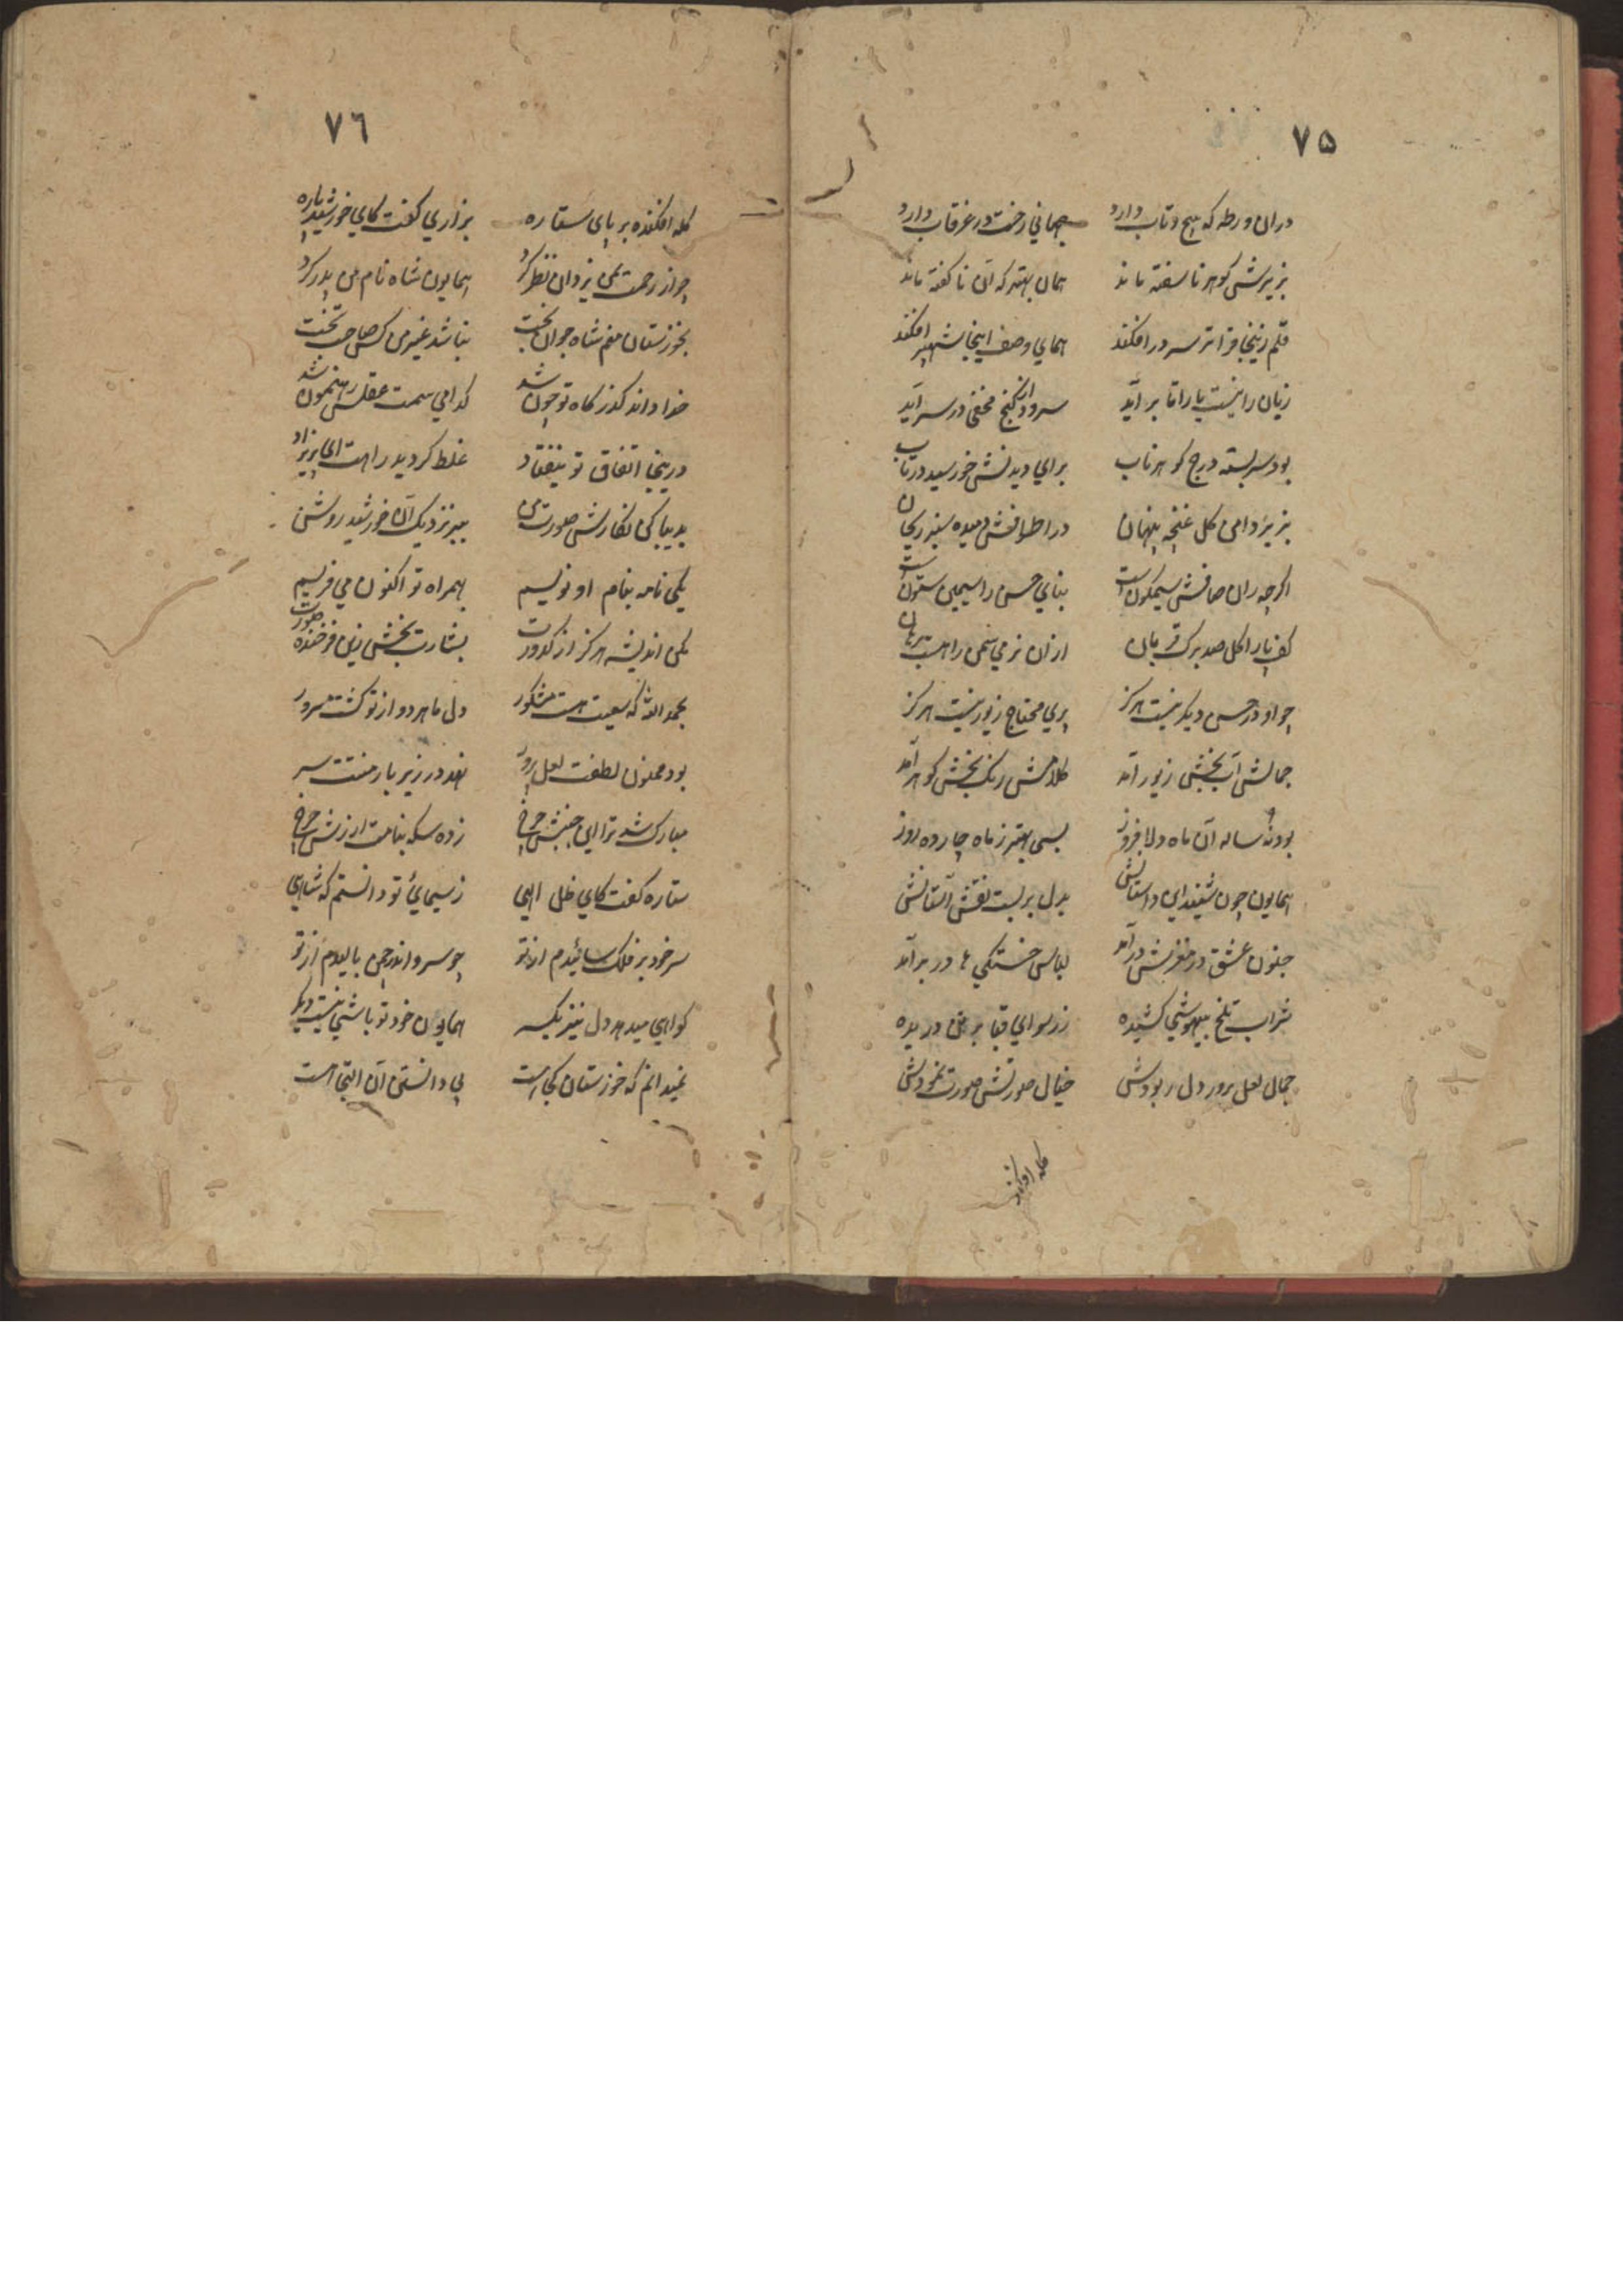 ٧۵
دران ورطه که پیچ و تاب دارد جهانی رخت در غرقاب دارد
بزیرش کوهر ناسفته ماند همان بهتر که آن ناکفته ماند
قلم زینجا فراتر سر در افکند همای وصف اینجا شهپر افکند
زبان را نیست یارا تا برآید سرود از کنج مخفی در سر آید
بود سربسته درج کوهر ناب برای دیدنش خورشید در تاب
بزیر دامن کل غنچه پنهان در اطرافش دمیده سبز ریحان
اکرچه ران صافش سیمکونست بنای حسن را سیمین ستونست
کف پا را کل صد برک قربان ازان نرمی سمن راهست برهان
چو او در حسن دیکر نیست هرکز پری محتاج زیور نیست هرکز
جمالش آب بخش زیور آمد کلامش رنک بخش کوهر آمد
بود نه ساله آن ماه دلافروز بسی بهتر ز ماه چارده روز
همایون چون شنید این داستانش بدل بربست نقش آستانش
جنون عشق در مغزش درآمد لباس خستکی ها در بر آمد
شراب تلخ بیهوشی کشیده ز رسوای قبا بر تن دریده
جمال لعل پرور دل ربودش خیال صورتش صورت نمودش
کله افکنده
٧٦
کله افکنده بر پای ستاره بزاری کفت کای خورشید پاره
چو از رحمت بمن یزدان نظر کرد همایون شاه نام من پدر کرد
بخوزستان منم شاه جوان بخت نباشد غیر من کس صاحب تخت
خدا داند کذر کاه تو چون شد کدامی سمت عقلت رهنمون شد
درینجا اتفاق تو نیفتاد غلط کردید راهت ای پریزاد
بدیبا کن نکارش صورت من ببر نزدیک آن خورشید روشن
یکی نامه بنام او نویسم بهمراه تو اکنون می فریسم
مکن اندیشه هرکز از کدورت بشارت بخش زین فرخنده صورت
بحمدالله که سعیت هست مشکور دل ما هر دو از تو کشت مسرور
بود ممنون لطفت لعل پرور نهد در زیر بار منتت سر
مبارک شد ترا این جنبش چرخ زده سکه بنامت ارزش چرخ
ستاره کفت کای ظل الهی ز سیمای تو دانستم که شاهی
سر خود بر فلک سائیدم از تو چو سرو اندر چمن بالیدم از تو
کواهی میدهد دل نیز یکسر همایون خود تو باشی نیست دیکر
نمیدانم که خوزستان کجا است پی دانستن آن التجا است